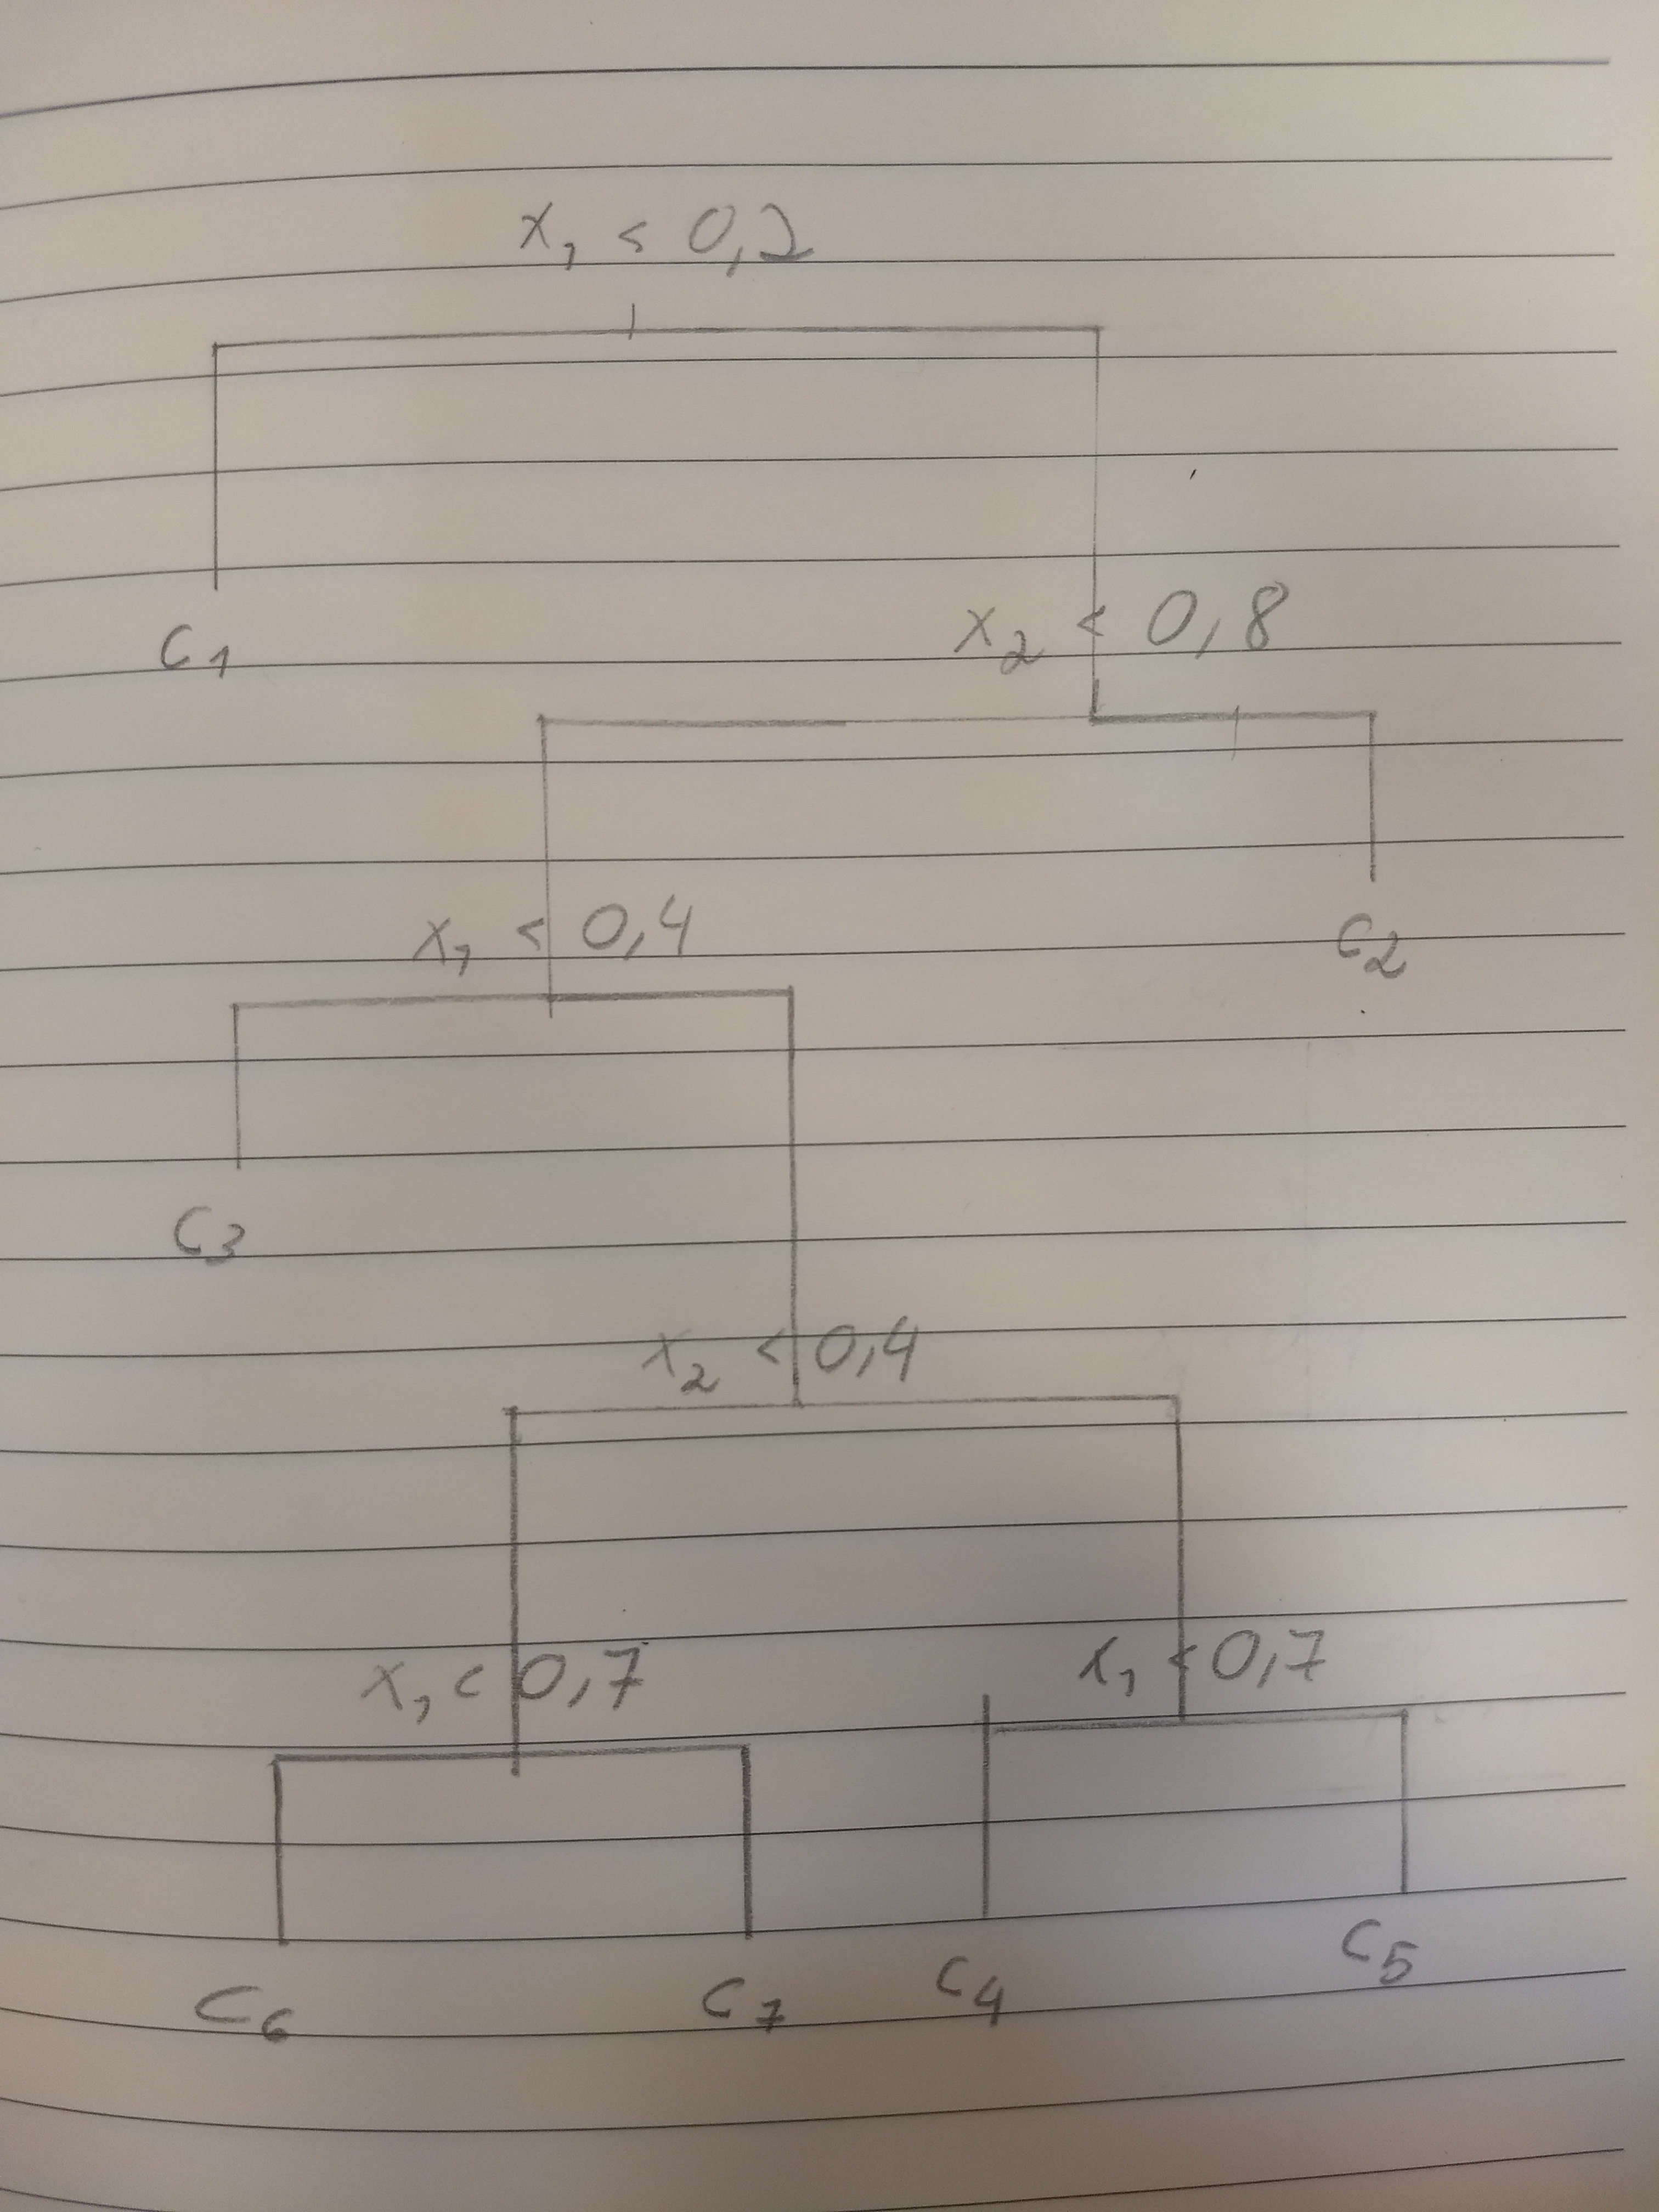 x₁ < 0,2
C₁
x₂ < 0,8
x₁ < 0,4
C₂
C₃
x₂ < 0,4
x₁ < 0,7
x₁ < 0,7
C₆
C₇
C₄
C₅